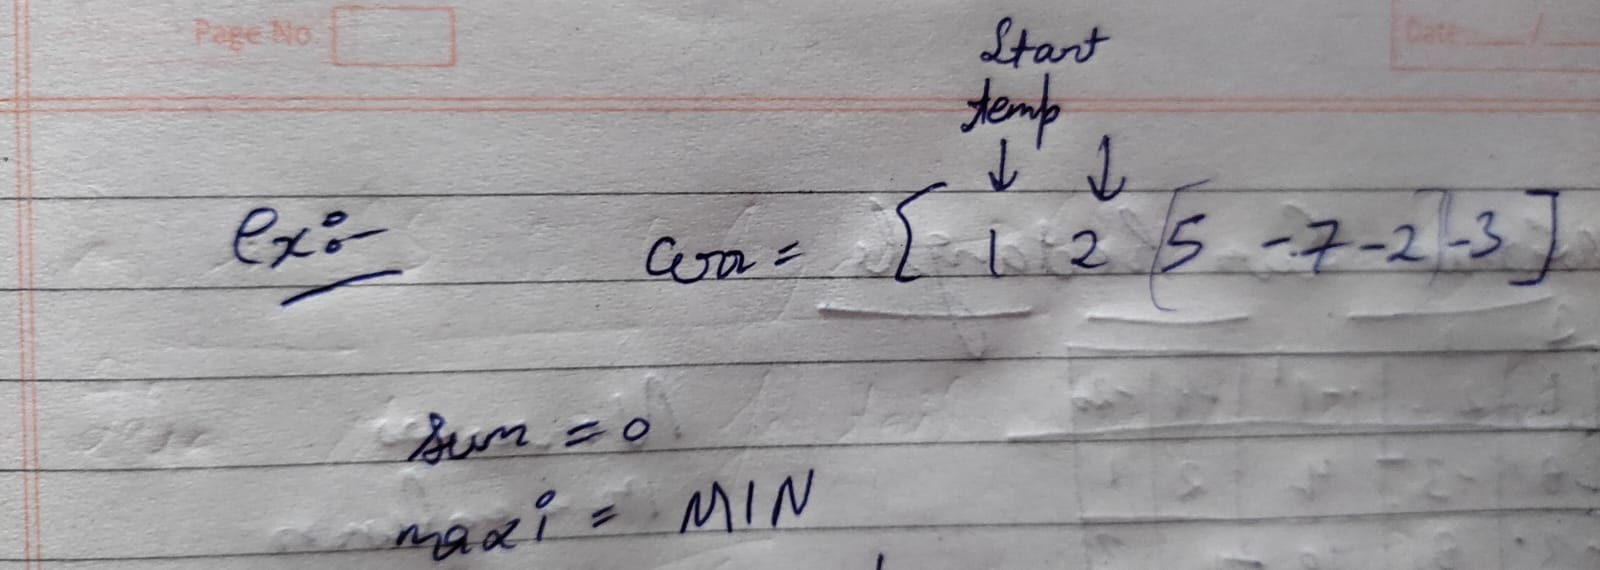 Page No.
Date
Start
temp
↓ ↓
ex:-
arr = [ 1 2 [5 -7 -2] -3 ]
sum = 0
maxi = MIN